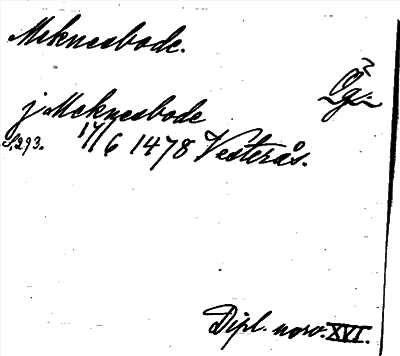 Meknesbode.
j Meknesbode
S. 293. 17/6 1478 Vesterås.
Dipl. norv. XVI.